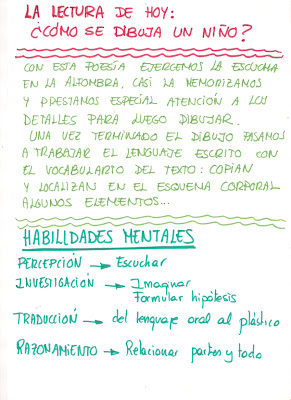 LA LECTURA DE HOY:
¿CÓMO SE DIBUJA UN NIÑO?
CON ESTA POESÍA EJERCEMOS LA ESCUCHA
EN LA ALFOMBRA, CASI LA MEMORIZAMOS
Y PRESTAMOS ESPECIAL ATENCIÓN A LOS
DETALLES PARA LUEGO DIBUJAR.
UNA VEZ TERMINADO EL DIBUJO PASAMOS
A TRABAJAR EL LENGUAJE ESCRITO CON
EL VOCABULARIO DEL TEXTO: COPIAN
Y LOCALIZAN EN EL ESQUEMA CORPORAL
ALGUNOS ELEMENTOS...
HABILIDADES MENTALES
PERCEPCIÓN → Escuchar
INVESTIGACIÓN → Imaginar
Formular hipótesis
TRADUCCIÓN → del lenguaje oral al plástico
RAZONAMIENTO → Relacionar partes y todo